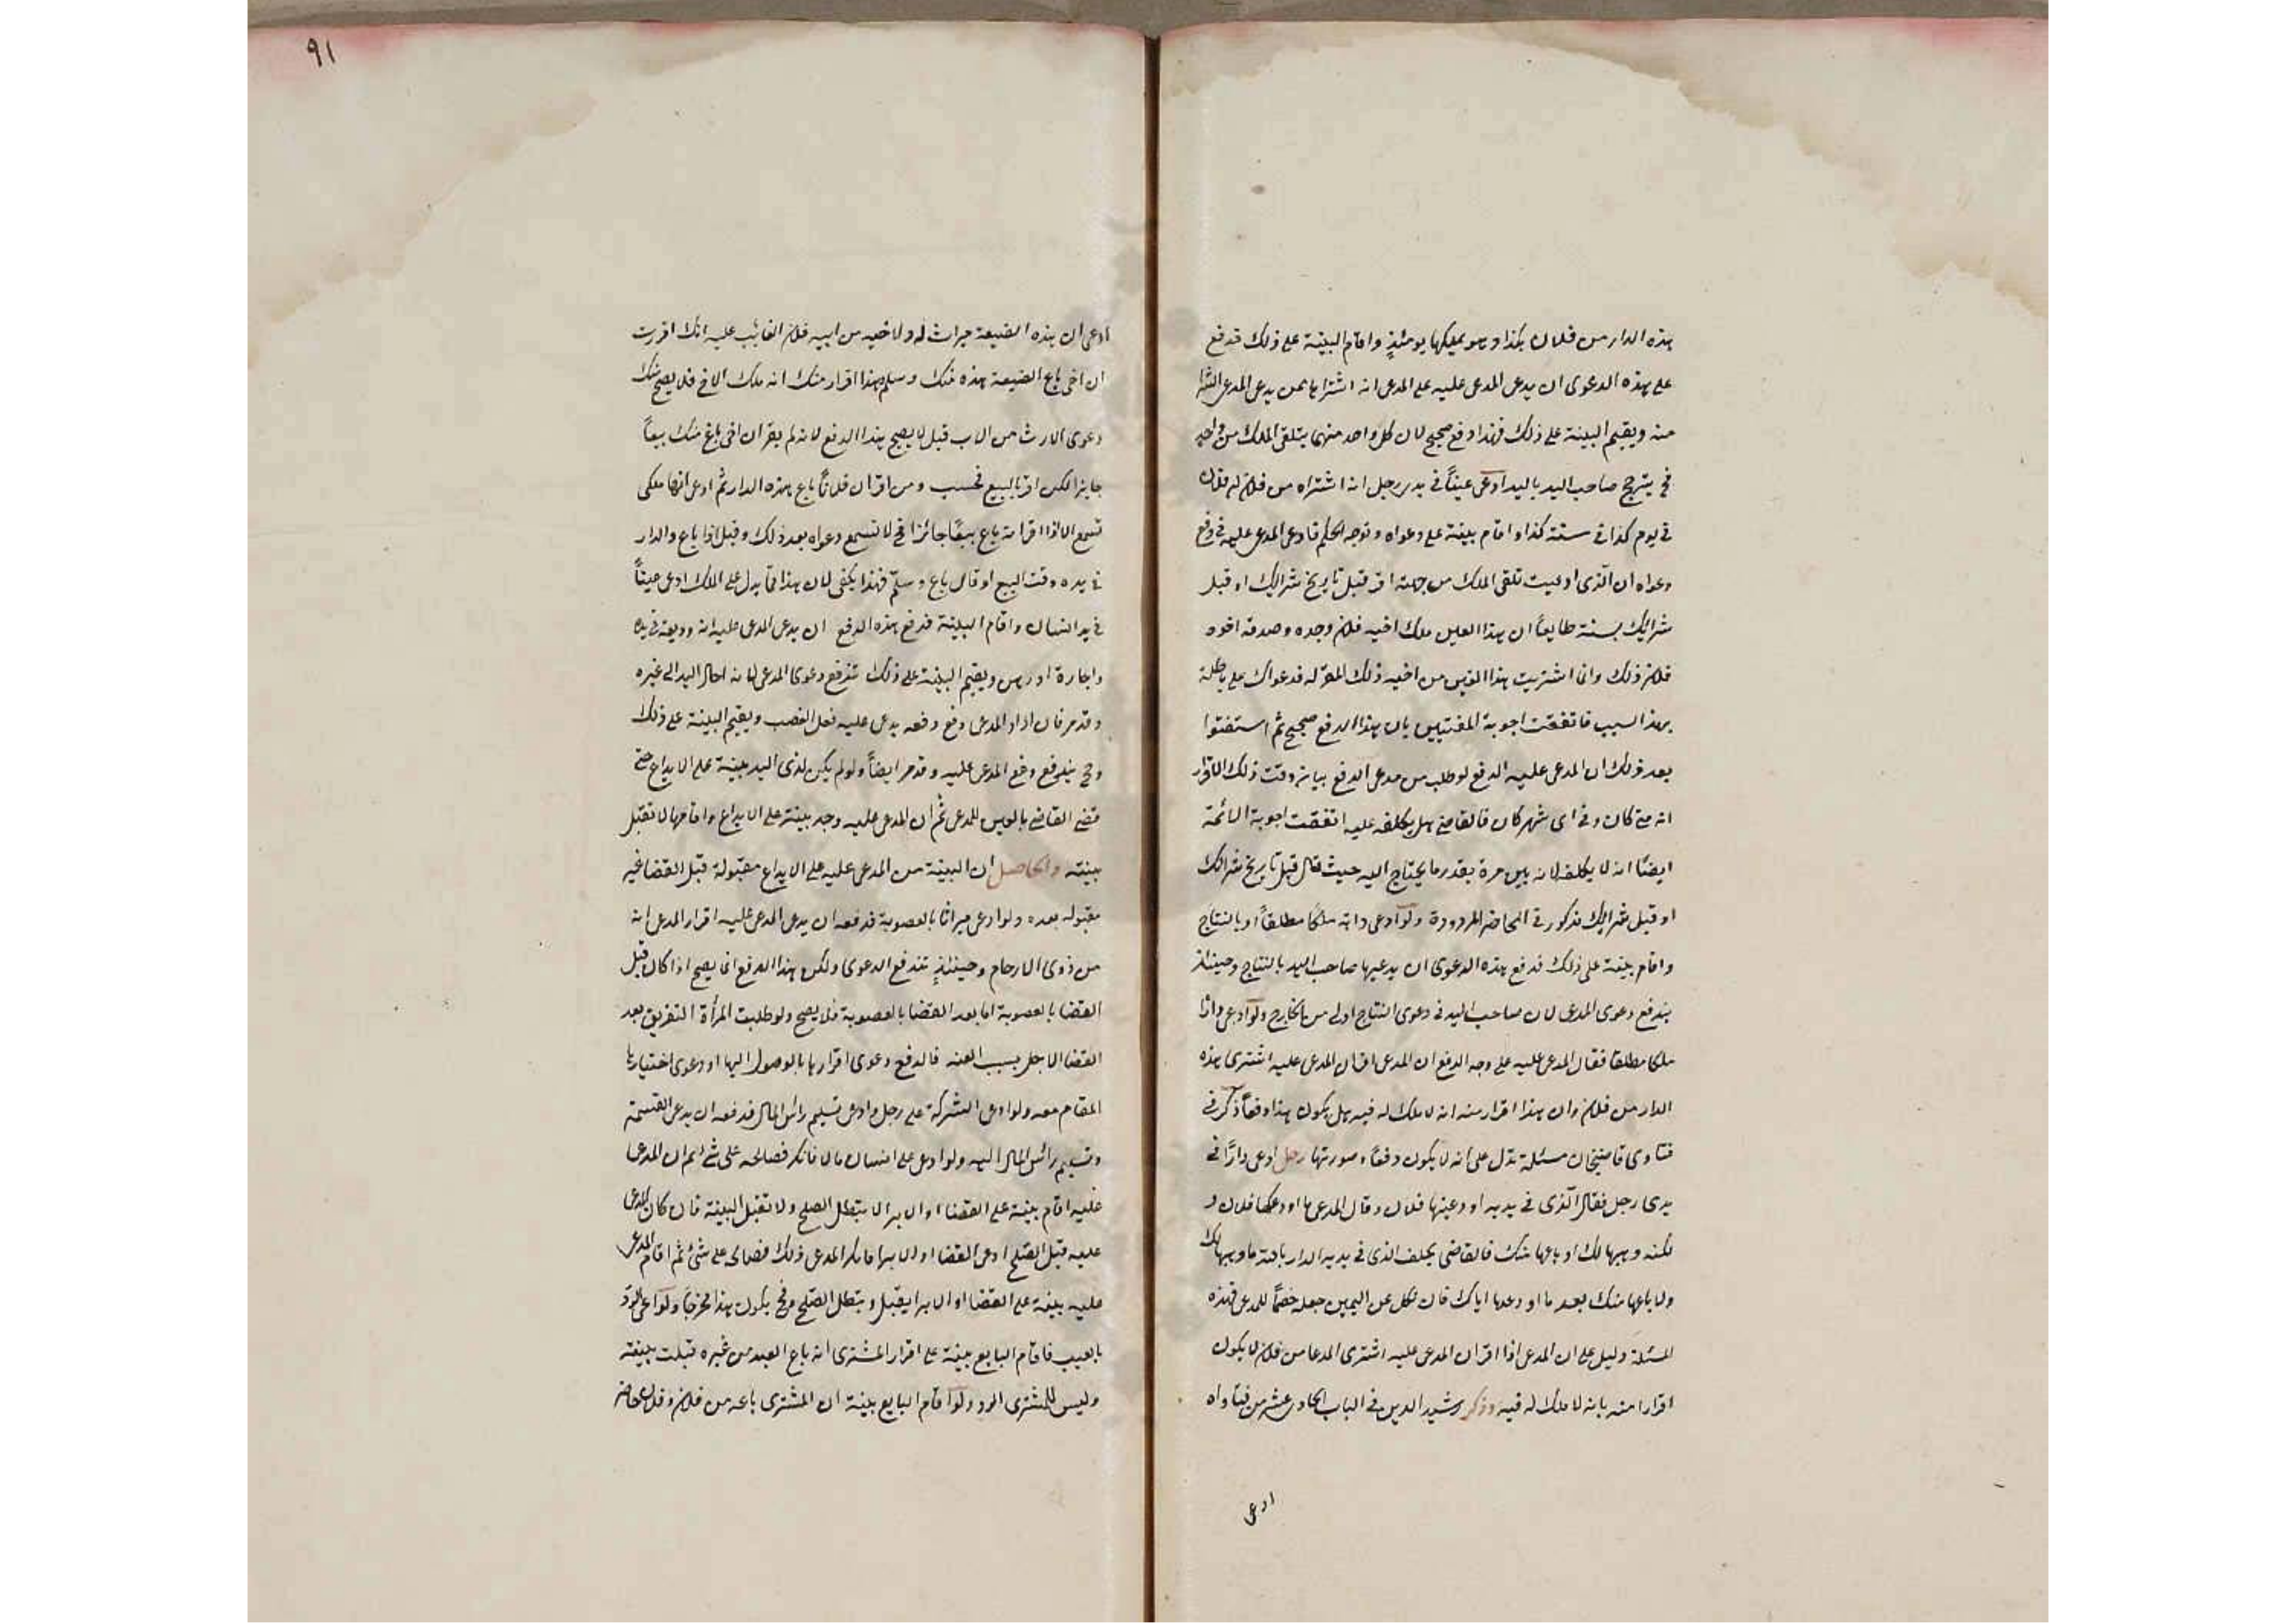 هذه الدار من فلان بكذا وهو يملكها يومئذٍ واقام البينة على ذلك فدفع
على هذه الدعوى ان يدعى المدعى عليه على المدعى انه اشتراها ممن يدعى المدعى الشرا
منه ويقيم البينة على ذلك فهذا دفع صحيح لان كل واحد منهما يتلقى الملك من واحد
فح يترجح صاحب اليد باليد ادعى عيناً فى يد رجل انه اشتراه من فلان بن فلان
فى يوم كذا فى سنة كذا واقام بينة على دعواه وتوجه الحكم فادعى المدعى عليه فى دفع
دعواه ان الذى ادعيت تلقى الملك من جهته اقر قبل تاريخ شرائك او قبل
شرائك بسنة طايعاً ان هذا العين ملك اخيه فلان وحده وصدقه اخوه
فلان ذلك وانا اشتريت هذا العين من اخيه ذلك المقر له فدعواك على باطلة
بهذا السبب فاتفقت اجوبة المفتيين بان هذا الدفع صحيح ثم استفتوا
بعد ذلك ان المدعى عليه الدفع لو طلب من مدعى الدفع بيان وقت ذلك الاقرار
انه متى كان وفى اى شهر كان فالقاضى هل يكلفه عليه اتفقت اجوبة الائمة
ايضًا انه لا يكلف لانه بين مرة بقدر ما يحتاج اليه حيث قال قبل تاريخ شرائك
او قبل شرائك مذكور فى المحاضر المردودة ولو ادعى دابة ملكا مطلقاً او بالنتاج
واقام بينة على ذلك فدفع هذه الدعوى ان يدعيها صاحب اليد بالنتاج وحينئذ
يندفع دعوى المدعى لان صاحب اليد فى دعوى النتاج اولى من الخارج ولو ادعى دارًا
ملكا مطلقا فقال المدعى عليه على وجه الدفع ان المدعى اقر ان المدعى عليه اشترى هذه
الدار من فلان وان هذا اقرار منه انه لا ملك له فيه هل يكون هذا دفعاً ذكر فى
فتاوى قاضيخان مسئلة تدل على انه لا يكون دفعًا وصورتها رجل ادعى دارًا فى
يدى رجل فقال الذى فى يديه اودعنيها فلان وقال المدعى ما اودعكها فلان
لكنه وهبها لك او باعها منك فالقاضى يحلف الذى فى يديه الدار بالله ما وهبها لك
ولا باعها منك بعد ما اودعها اياك فان نكل عن اليمين جعله خصماً للمدعى فهذه
المسئلة دليل على ان المدعى اذا اقر ان المدعى عليه اشترى المدعا من فلان لا يكون
اقرارا منه بانه لا ملك له فيه وذكر رشيد الدين فى الباب الحادى عشر من فتاواه
ادعى
٩١
ادعى ان هذه الضيعة ميراث له ولاخيه من ابيه فلان الغائب عليه انك اقررت
ان اخى باع الضيعة هذه منك وسلم وهذا اقرار منك انه ملك الاخ فلا يصح منك
دعوى الارث من الاب قيل لا يصح هذا الدفع لانه لم يقر ان اخى باع منك بيعاً
جايزا لكن اقر بالبيع فحسب ومن اقر ان فلانًا باع هذه الدار ثم ادعى انها ملكى
تسمع الا اذا اقر انه باع بيعًا جائزا فح لا تسمع دعواه بعد ذلك وقيل اذا باع والدار
فى يده وقت البيع او قال باع وسلم فهذا يكفى لان هذا مما يدل على الملك ادعى عيناً
فى يد انسان واقام البينة فدفع هذه الدفع ان يدعى المدعى عليه انه وديعة فى يده
واجارة او رهن ويقيم البينة على ذلك تندفع دعوى المدعى لما انه احال اليد الى غيره
وقد مر فان اراد المدعى دفع دفعه يدعى عليه فعل الغصب ويقيم البينة على ذلك
وح يندفع دفع المدعى عليه وقد مر ايضاً ولو لم يكن لذى اليد بينة على الايداع حتى
قضى القاضى بالعين للمدعى ثم ان المدعى عليه وجد بينة على الايداع واقامها لا تقبل
بينته والحاصل ان البينة من المدعى عليه على الايداع مقبولة قبل القضا غير
مقبوله بعده ولو ادعى ميراثا بالعصوبة فدفعه ان يدعى المدعى عليه اقرار المدعى انه
من ذوى الارحام وحينئذٍ تندفع الدعوى ولكن هذا الدفع انما يصح اذا كان قبل
القضا بالعصوبة اما بعد القضا بالعصوبة فلا يصح ولو طلبت المرأة التفريق بعد
القضا الاجل بسبب العنه فالدفع دعوى اقرارها بالوصول اليها او دعوى اختيارها
المقام معه ولو ادعى الشركة على رجل وادعى تسليم رأس المال فدفعه ان يدعى القسمة
وتسليم رأس المال اليه ولو ادعى على انسان مالا فانكر فصالحه على شئ ثم ان المدعا
عليه اقام بينة على القضا او الابرا لا يبطل الصلح ولا تقبل البينة فان كان المدعى
عليه قبل الصلح ادعى القضا او الابرا فانكر المدعى ذلك فصالحه على شئ ثم اقام المدعى
عليه بينة على القضا او الابرا يقبل ويبطل الصلح وح يكون هذا مخرجاً ولو ادعى الرد
بالعيب فاقام البايع بينة على اقرار المشترى انه باع العبد من غيره قبلت بينته
وليس للمشترى الرد ولو اقام البايع بينة ان المشترى باعه من فلان وفلان حاضر